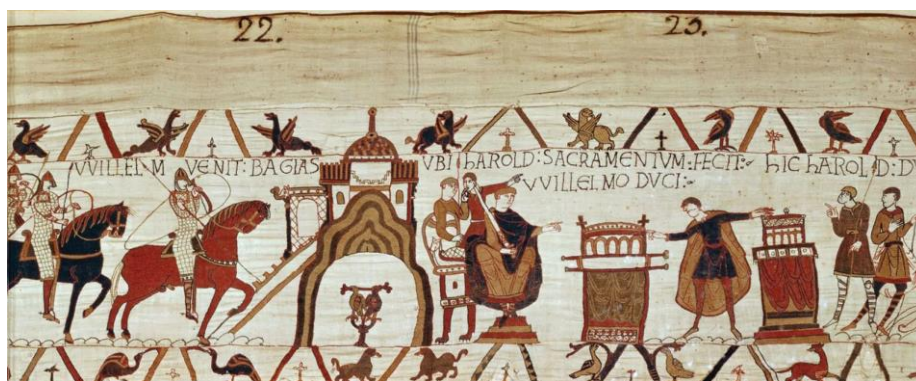 22.
23.
VVILLELM VENIT: BAGIAS VBI hAROLD: SACRAMENTVM: FECIT:
VVILLELMO DVCI:
hIC hAROLD: D